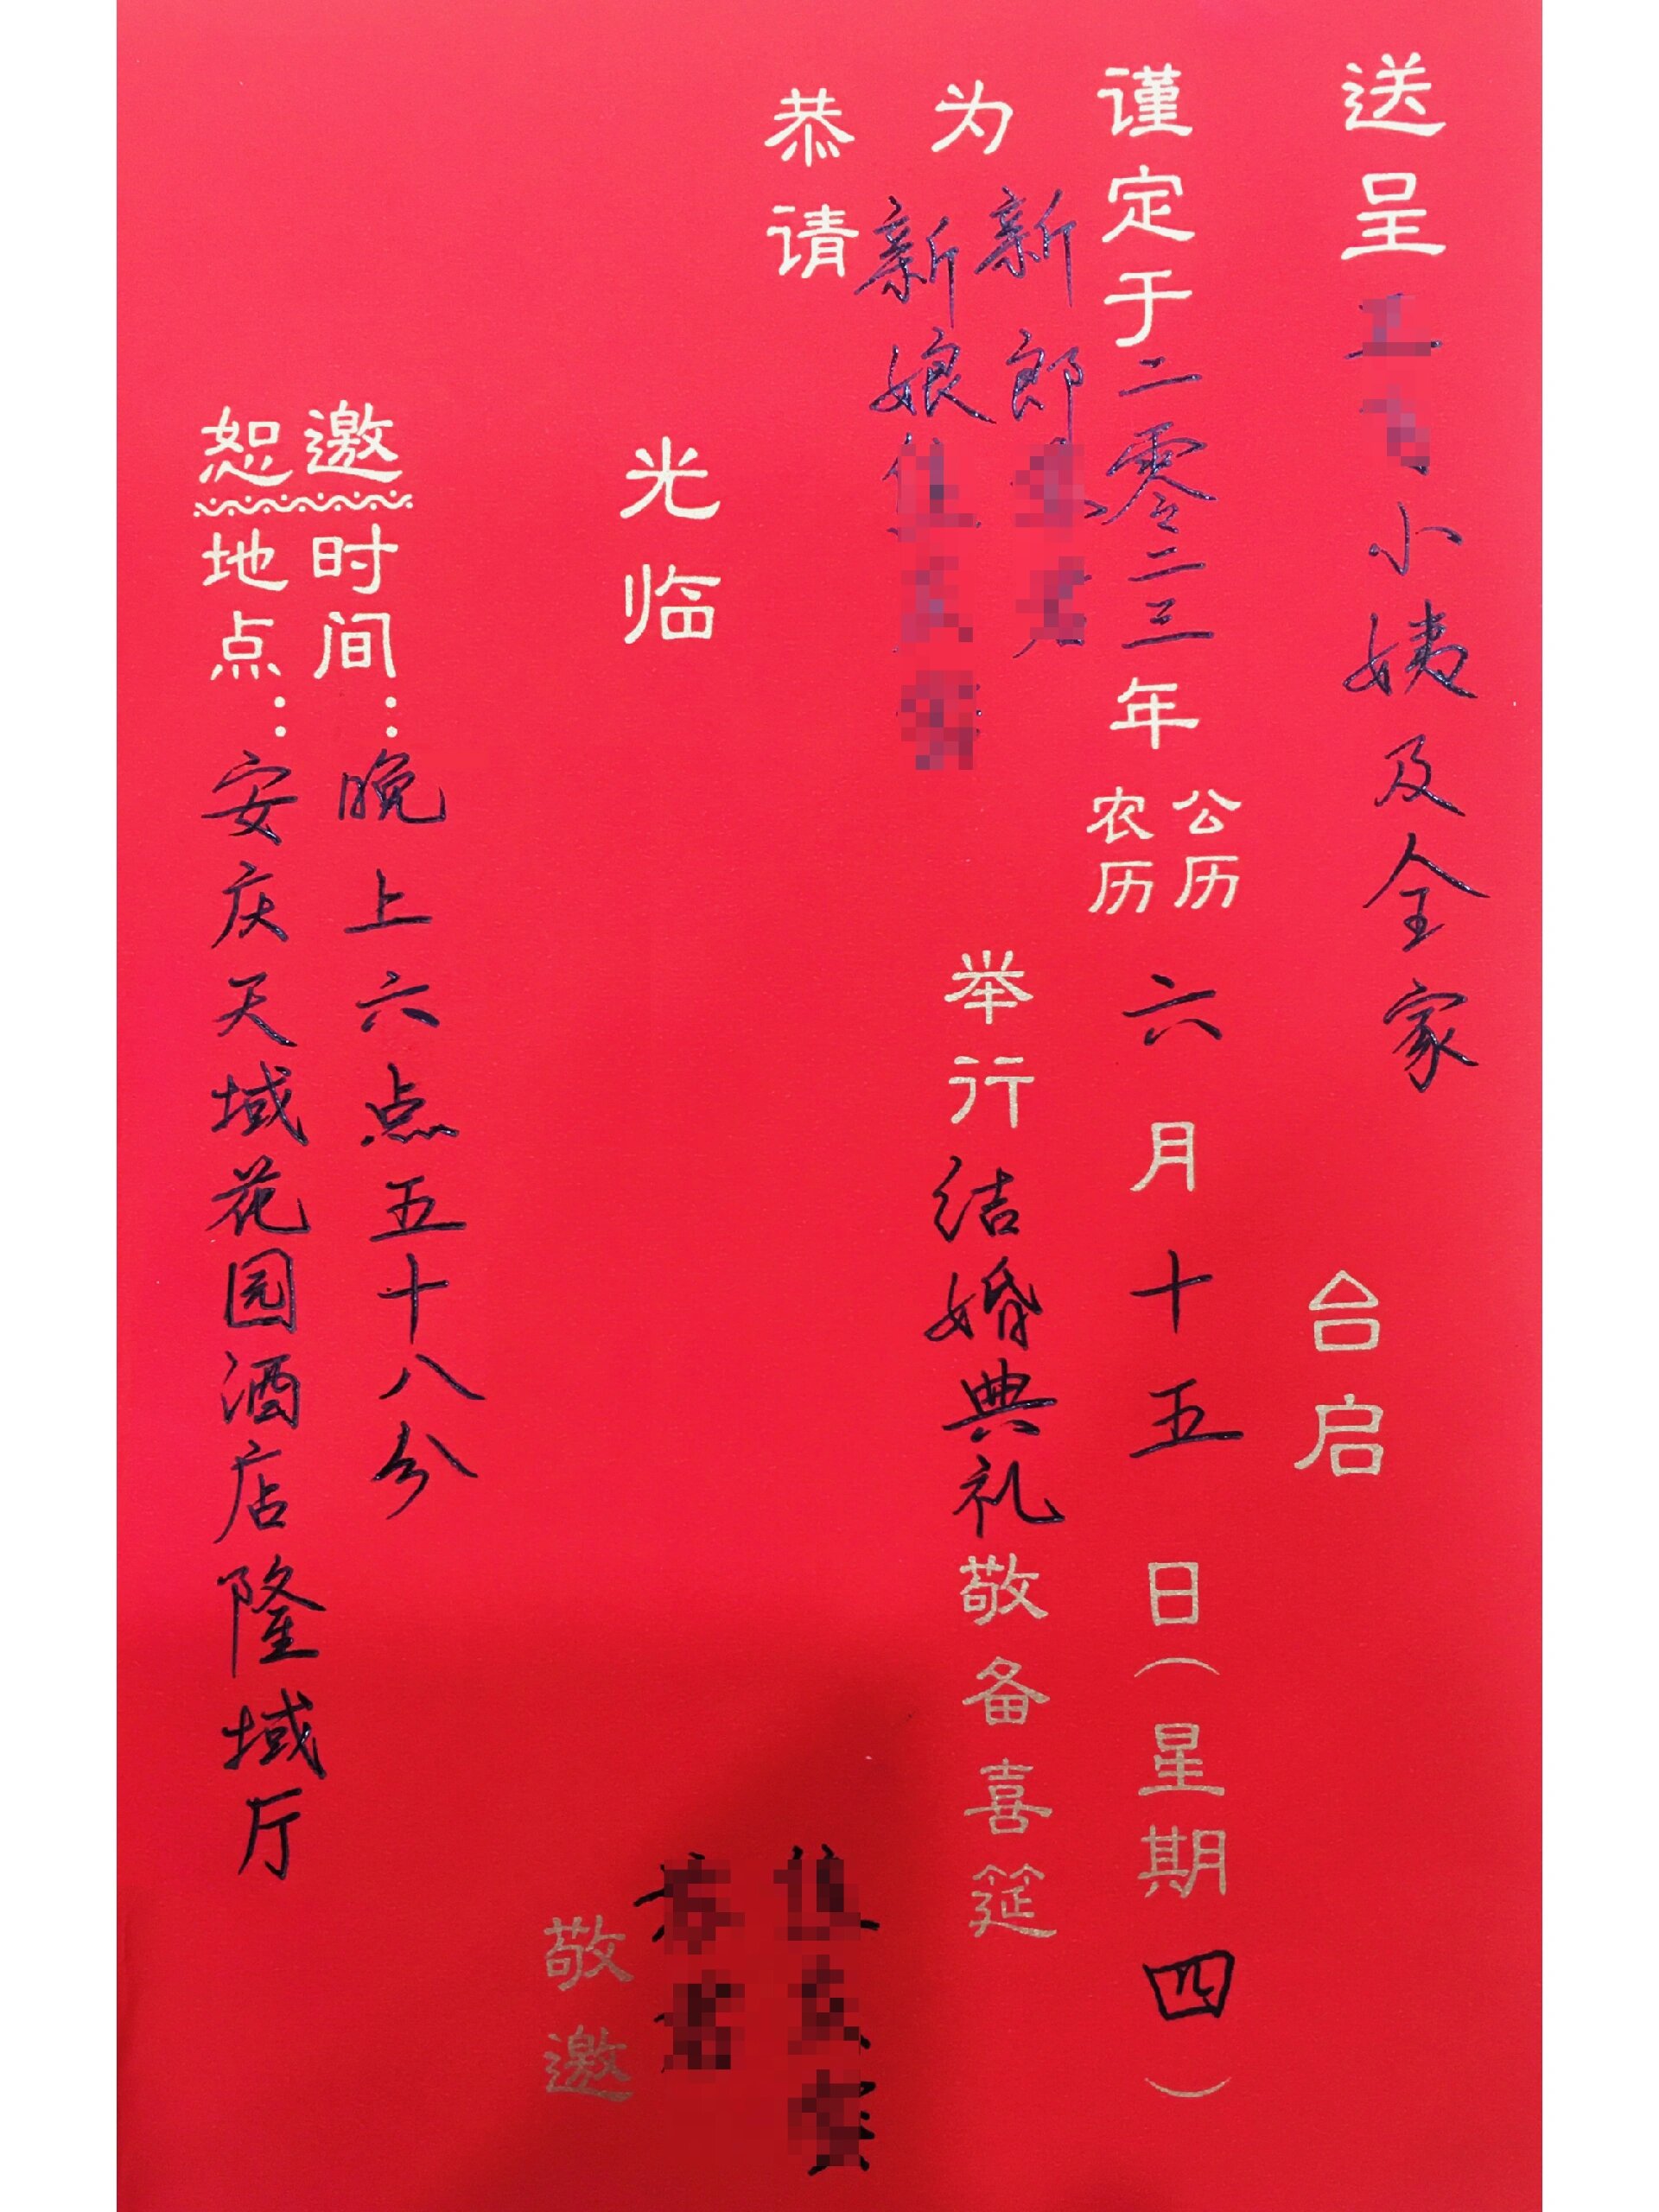 送呈 小姨及全家 台启
谨定于二零二三年公历农历六月十五日（星期四）
为新郎
新娘
举行结婚典礼敬备喜筵
恭请
光临
敬邀
邀时间：晚上六点五十八分
恕地点：安庆天域花园酒店隆域厅